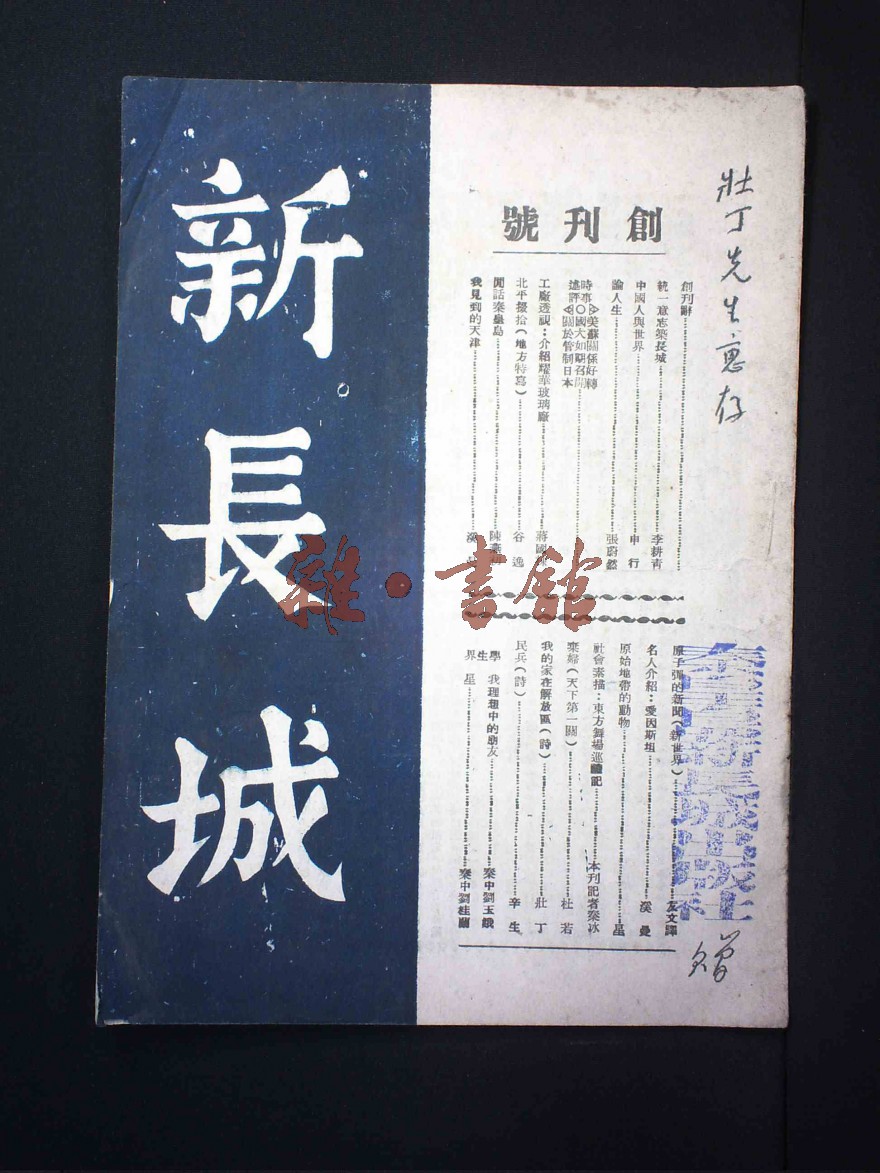 新長城
創刊號
創刊辭
統一意志築長城 李耕青
中國人與世界 申行
論人生 張蔚然
時事述評 美蘇關係好轉 國大如期召開 關於管制日本
工廠透視：介紹耀華玻璃廠 蔣國
北平掇拾（地方特寫） 谷逸
閒話秦皇島
我見到的天津
原子彈的新聞（新世界） 友文譯
名人介紹：愛因斯坦 溪曼
原始地帶的動物 星
社會素描：東方舞場巡禮記 本刊記者秦冰
棄婦（天下第一關） 杜若
我的家在解放區（詩） 壯丁
民兵（詩） 辛生
學生界 我理想中的朋友 秦中劉玉娥
星 秦中劉桂蘭
壯丁先生惠存
贈
雜·書館